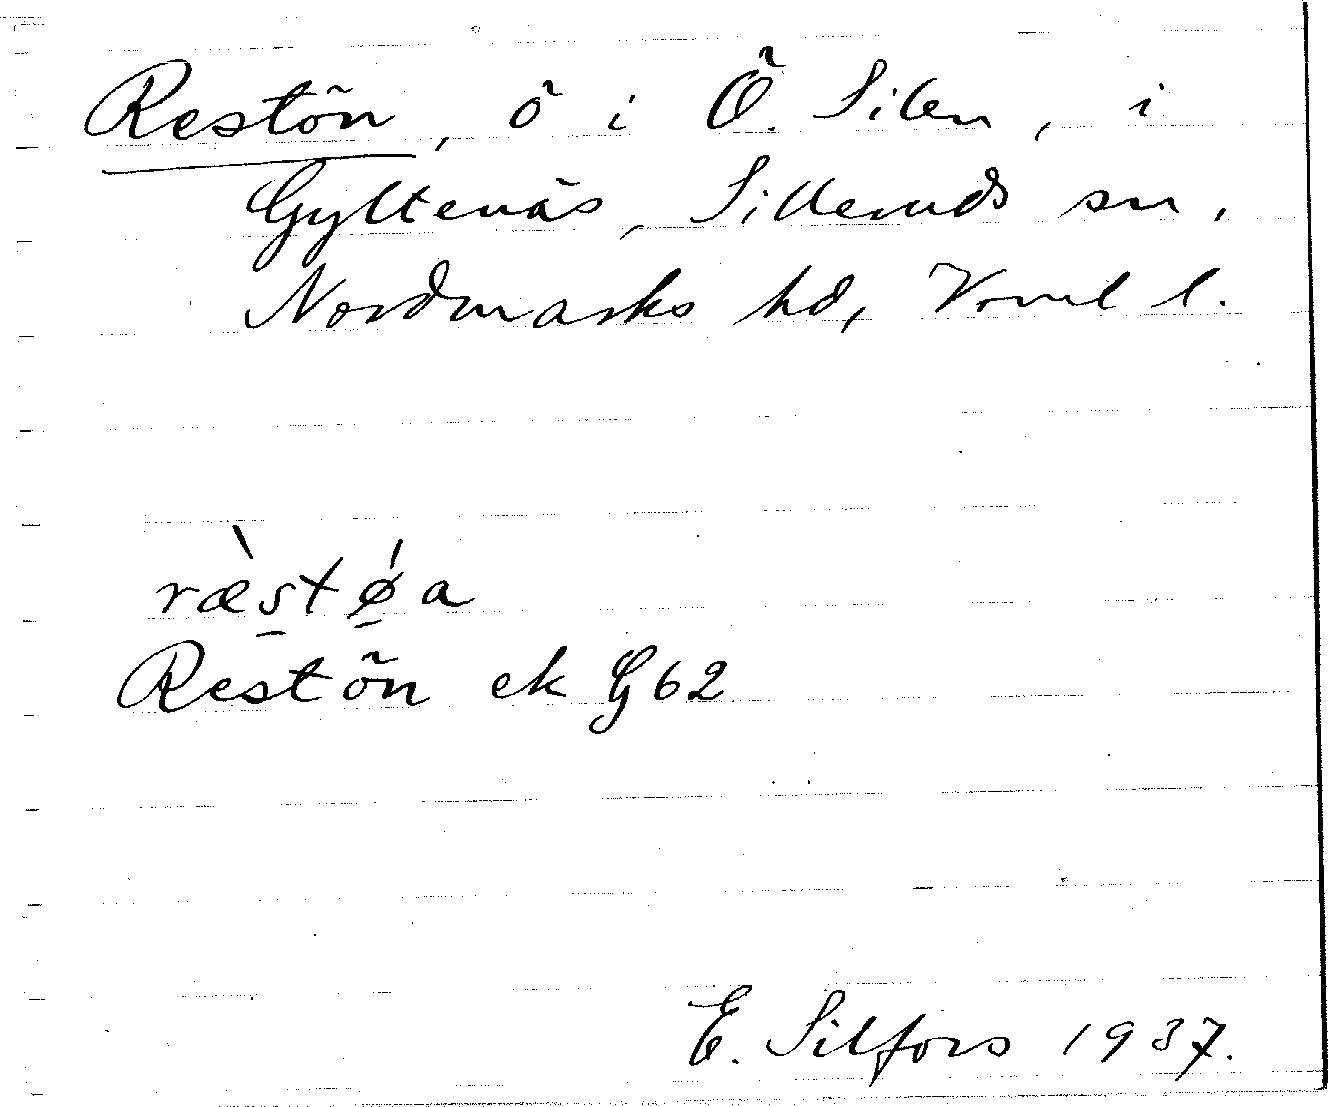 Restön, ö i Ö. Silen, i
Gyltenäs, Silleruds sn,
Nordmarks hd, Vrml l.
ræ̀stǿa
Restön ek G62
E. Silfors 1937.